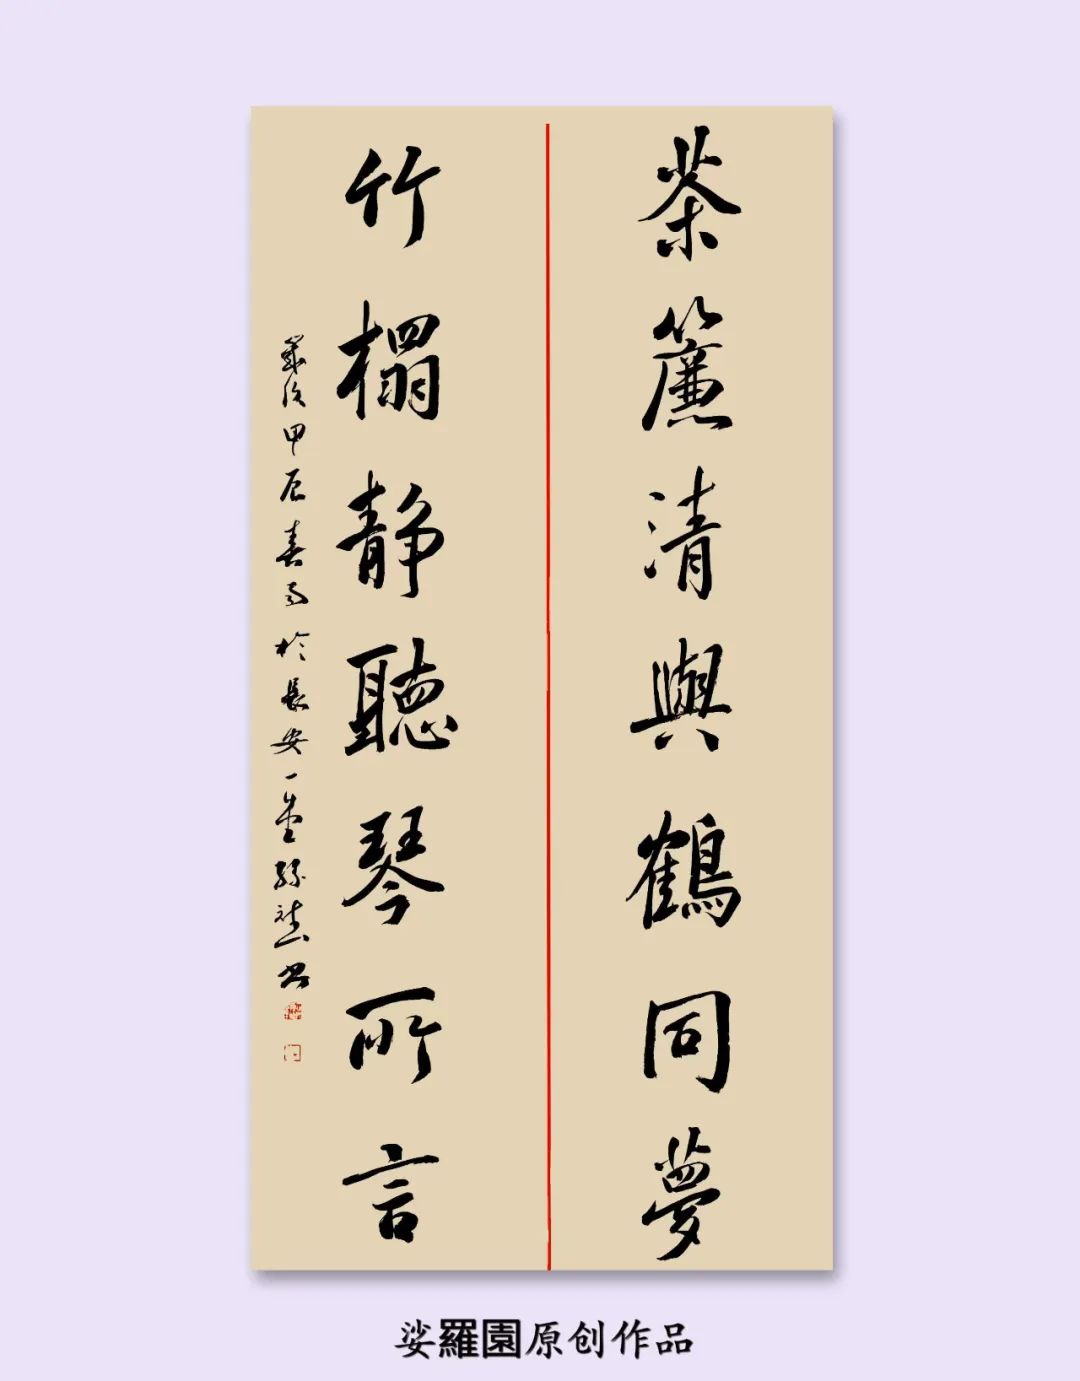 茶簾清與鶴同夢
竹榻静聽琴所言
歲次甲辰春月於長安一
娑羅園原创作品